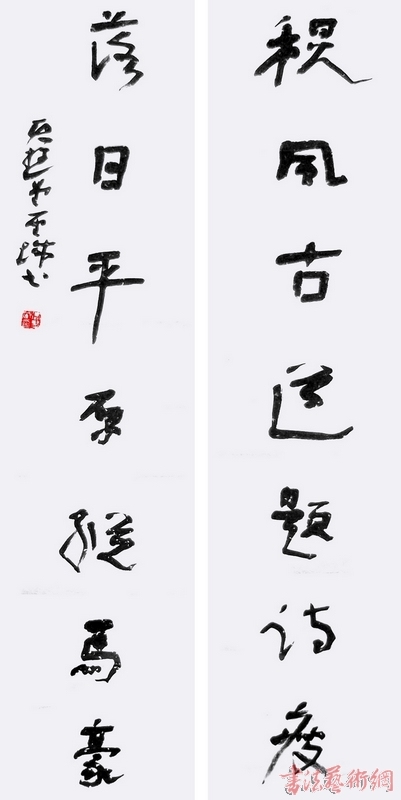 秋風古道題詩瘦
落日平原縱馬豪
書法藝術網